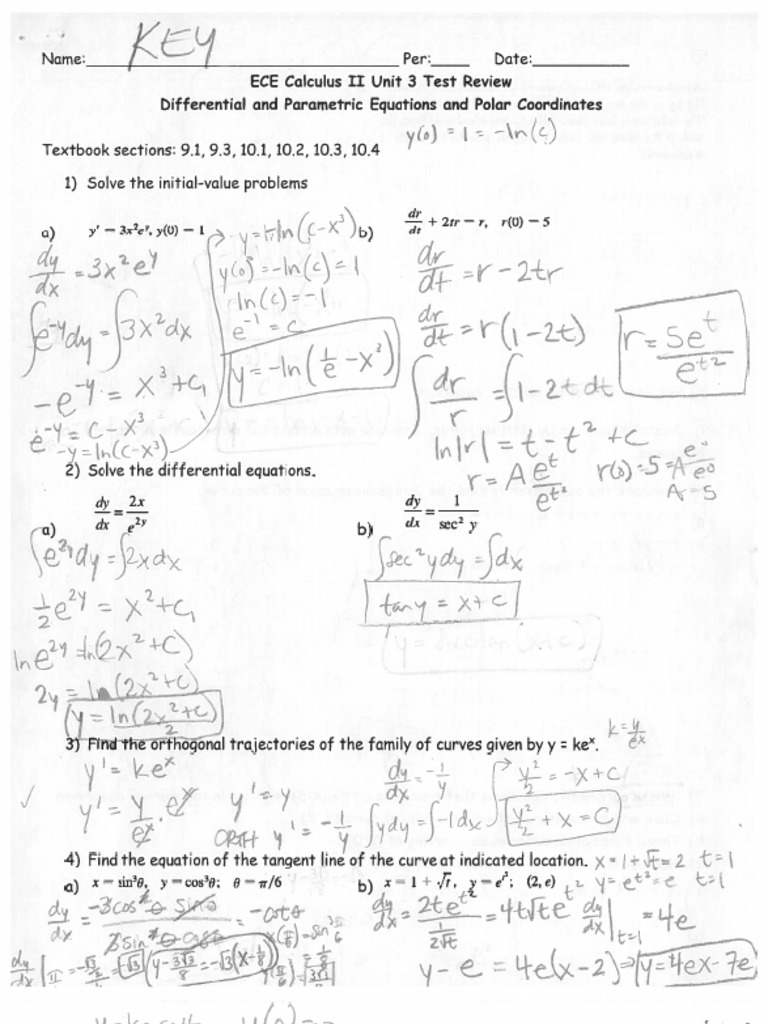 KEY
Name: Per: Date:
ECE Calculus II Unit 3 Test Review
Differential and Parametric Equations and Polar Coordinates
y(0) = 1 = -ln(c)
Textbook sections: 9.1, 9.3, 10.1, 10.2, 10.3, 10.4
1) Solve the initial-value problems
a) y' = 3x²eʸ, y(0) = 1
dy/dx = 3x²eʸ
∫e⁻ʸdy = ∫3x²dx
-e⁻ʸ = x³ + C₁
e⁻ʸ = c - x³
-y = ln(c-x³)
y(0) = -ln(c) = 1
ln(c) = -1
e⁻¹ = c
y = -ln(1/e - x³)
b) dr/dt + 2tr = r, r(0) = 5
dr/dt = r - 2tr
dr/dt = r(1-2t)
∫dr/r = ∫1-2t dt
ln|r| = t - t² + C
r = A eᵗ/e^t²
r(0) = 5 = A e⁰/e⁰
A = 5
r = 5eᵗ/e^t²
2) Solve the differential equations.
a) dy/dx = 2x/e²ʸ
∫e²ʸdy = ∫2xdx
1/2 e²ʸ = x² + C₁
ln e²ʸ = ln(2x² + C)
2y = ln(2x² + C)
y = ln(2x² + C)/2
b) dy/dx = 1/sec² y
∫sec²ydy = ∫dx
tan y = x + c
3) Find the orthogonal trajectories of the family of curves given by y = keˣ.
k = y/eˣ
y' = keˣ
y' = y/eˣ · eˣ
y' = y
ORTH y' = -1/y
dy/dx = -1/y
∫ydy = ∫-1dx
y²/2 = -x + C
y²/2 + x = C
4) Find the equation of the tangent line of the curve at indicated location.
x = 1 + √t = 2 t = 1
y = e^t² = e t = 1
a) x = sin³θ, y = cos³θ; θ = π/6
dy/dx = -3cos²θ sinθ / 3sin²θ cosθ = -cotθ
b) x = 1 + √t, y = e^t²; (2, e)
dy/dx = 2te^t² / 1/2√t = 4t√t e^t²
dy/dx|t=1 = 4e
y - e = 4e(x-2) → y = 4ex - 7e